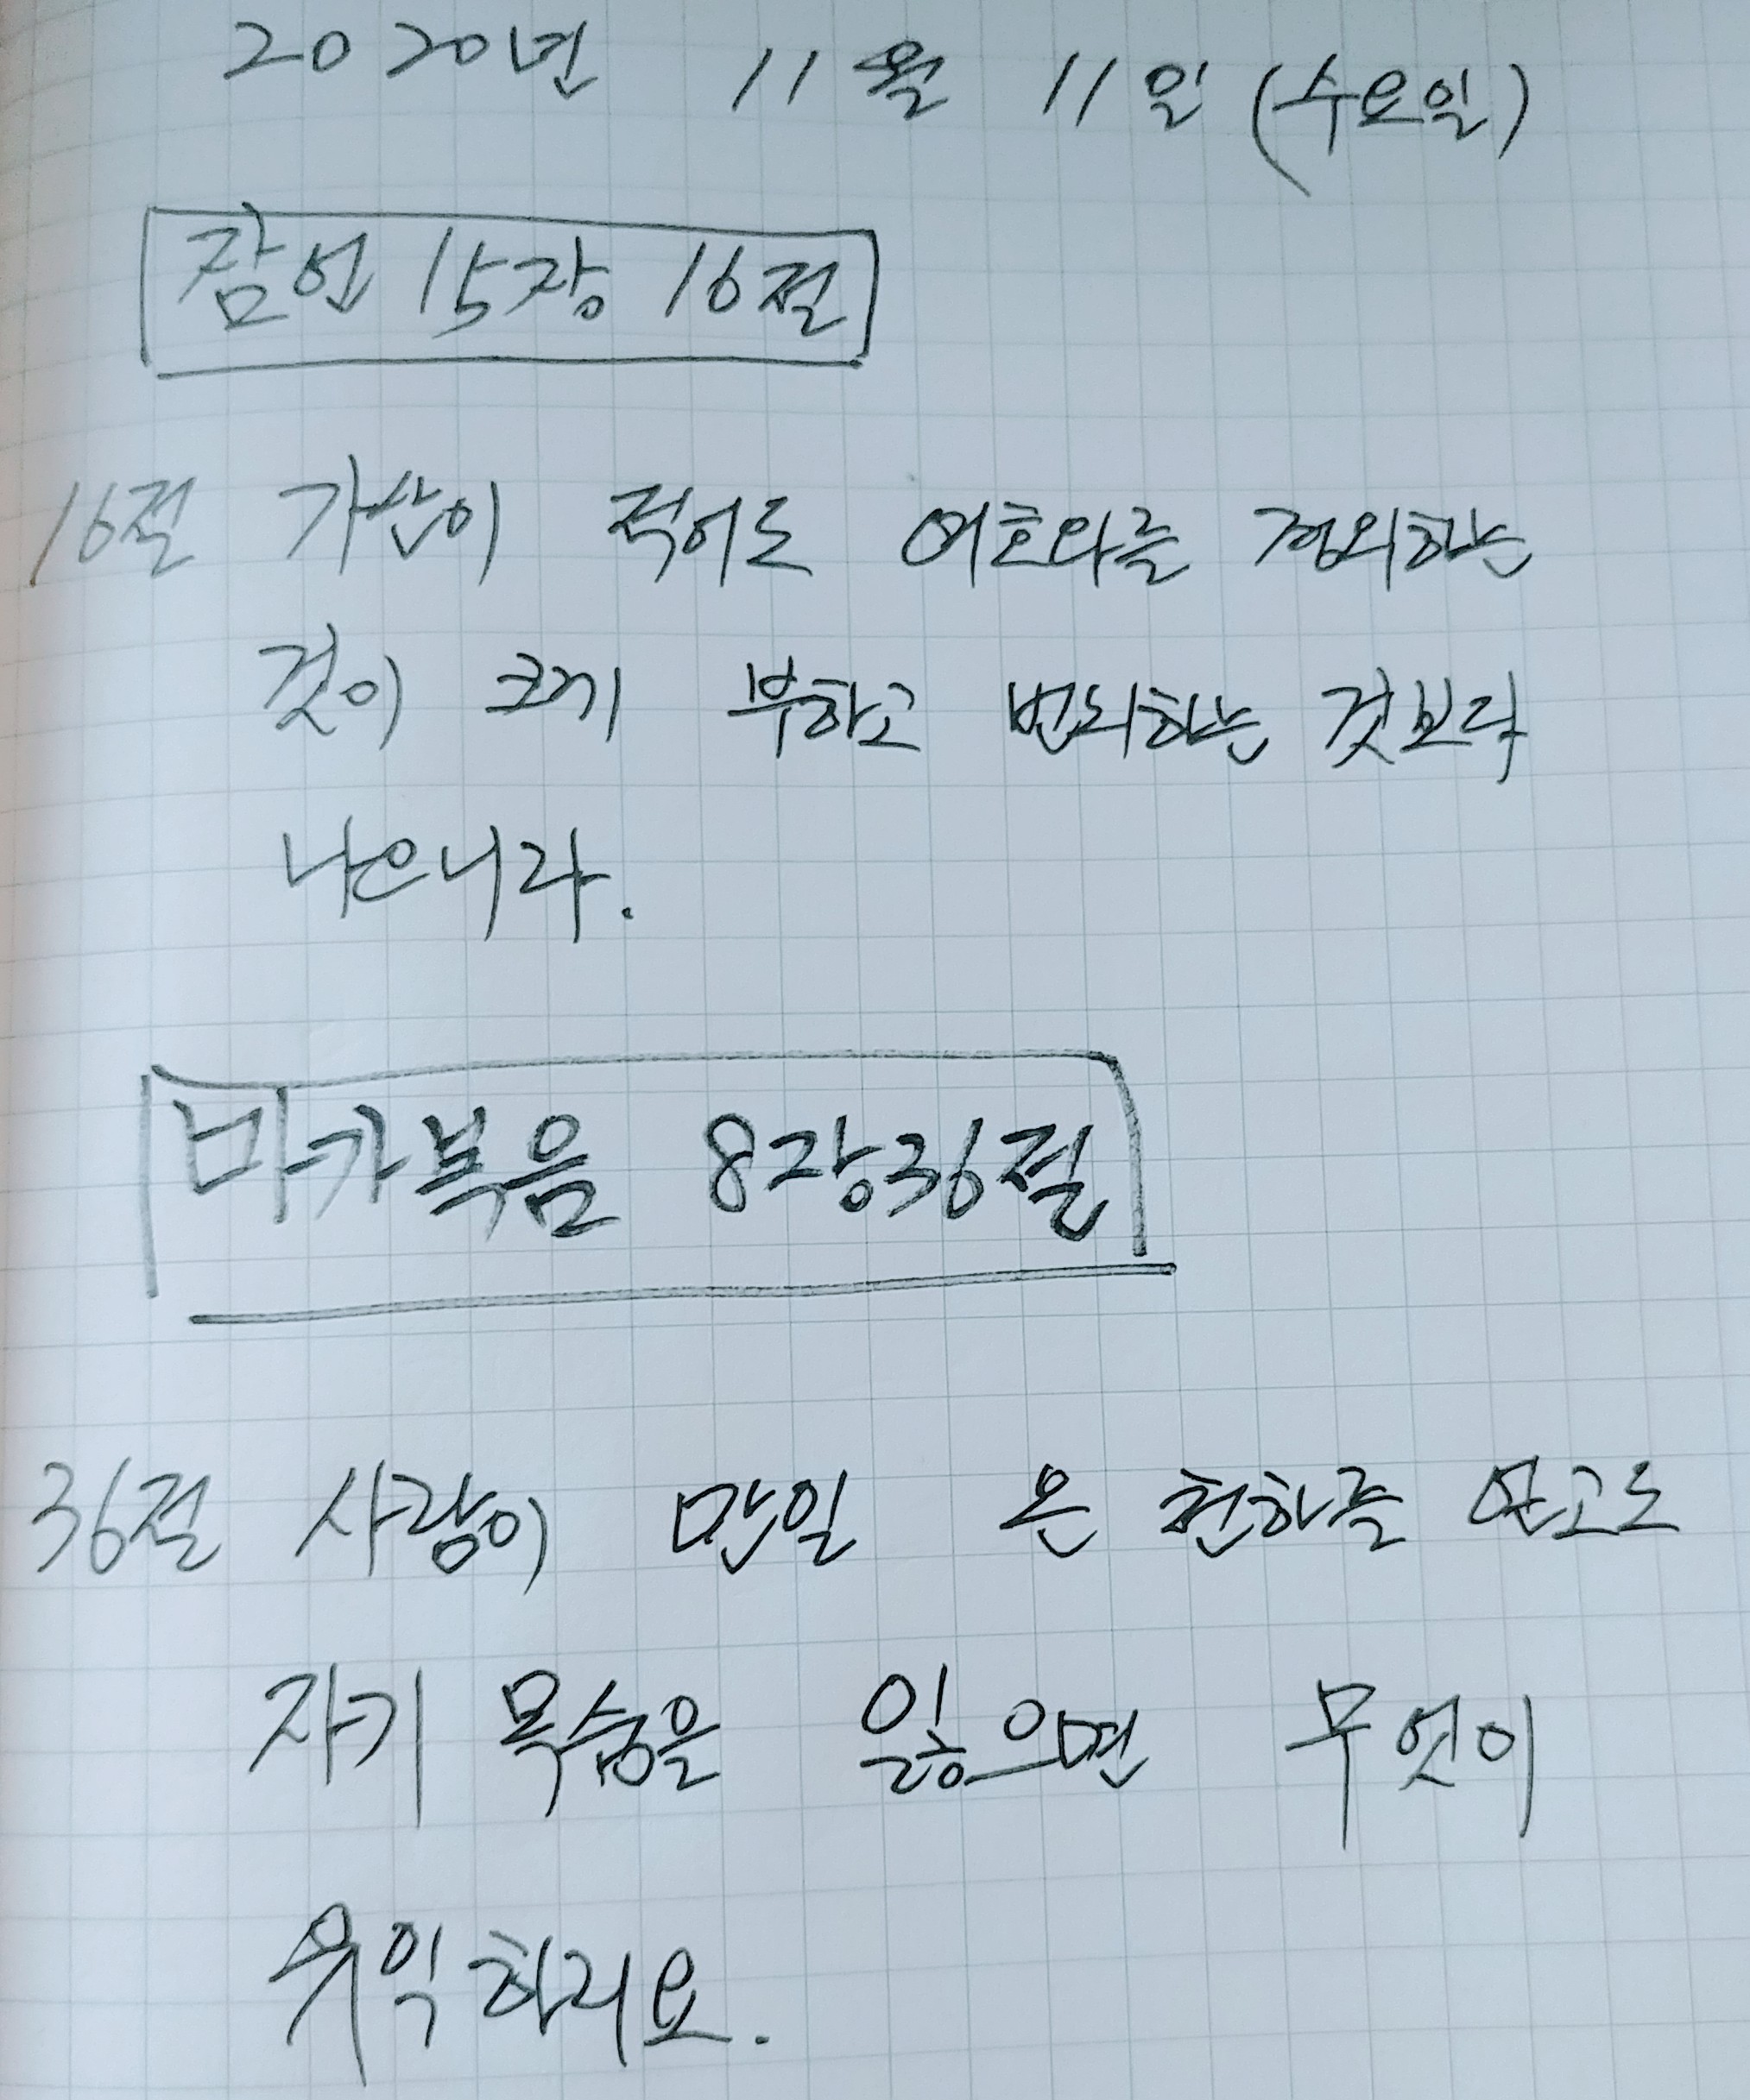 2020년 11월 11일 (수요일)
잠언 15장 16절
16절 가산이 적어도 여호와를 경외하는
것이 크게 부하고 번뇌하는 것보다
나으니라.
마가복음 8장36절
36절 사람이 만일 온 천하를 얻고도
자기 목숨을 잃으면 무엇이
유익하리요.